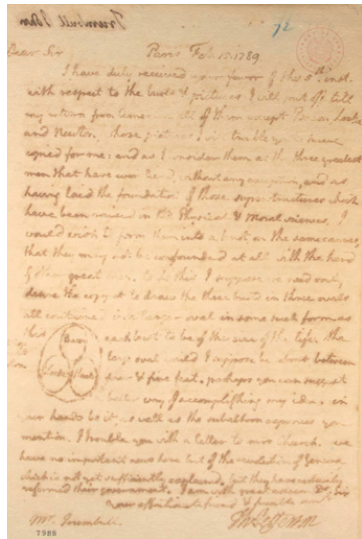 Trumbull John
72
Dear Sir Paris Feb. 15. 1789
I have duly received your favor of the 5th. inst.
with respect to the busts & pictures I will put off till
my return from America all of them except Bacon, Locke
and Newton, whose pictures I will trouble you to have
copied for me: and as I consider them as the three greatest
men that have ever lived, without any exception, and as
having laid the foundation of those superstructures which
have been raised in the Physical & Moral sciences, I
would wish to form them into a knot on the same canvas,
that they may not be confounded at all with the herd
of other great men. to do this I suppose we need only
desire the copyist to draw the three busts in three ovals
all contained in a larger oval in some such form as
this each bust to be of the size of the life. the
large oval would I suppose be about between
four & five feet. perhaps you can suggest
a better way of accomplishing my idea. in
your hands be it, as well as the subaltern expences you
mention. I trouble you with a letter to mrs Church. we
have no important news here but of the revolution of Geneva
which is not yet sufficiently explained. but they have certainly
reformed their government. I am with great esteem Dr. Sir
your affectionate friend & humble
Th: Jefferson
Mr. Trumbull.
7988